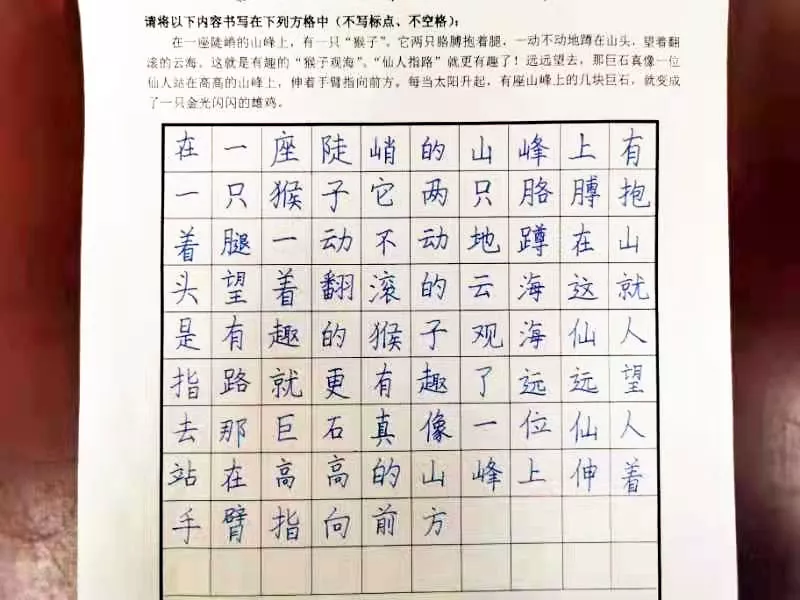 请将以下内容书写在下列方格中（不写标点、不空格）：
在一座陡峭的山峰上，有一只“猴子”。它两只胳膊抱着腿，一动不动地蹲在山头，望着翻
滚的云海，这就是有趣的“猴子观海”。“仙人指路”就更有趣了！远远望去，那巨石真像一位
仙人站在高高的山峰上，伸着手臂指向前方。每当太阳升起，有座山峰上的几块巨石，就变成
了一只金光闪闪的雄鸡。
在一座陡峭的山峰上有
一只猴子它两只胳膊抱
着腿一动不动地蹲在山
头望着翻滚的云海这就
是有趣的猴子观海仙人
指路就更有趣了远远望
去那巨石真像一位仙人
站在高高的山峰上伸着
手臂指向前方